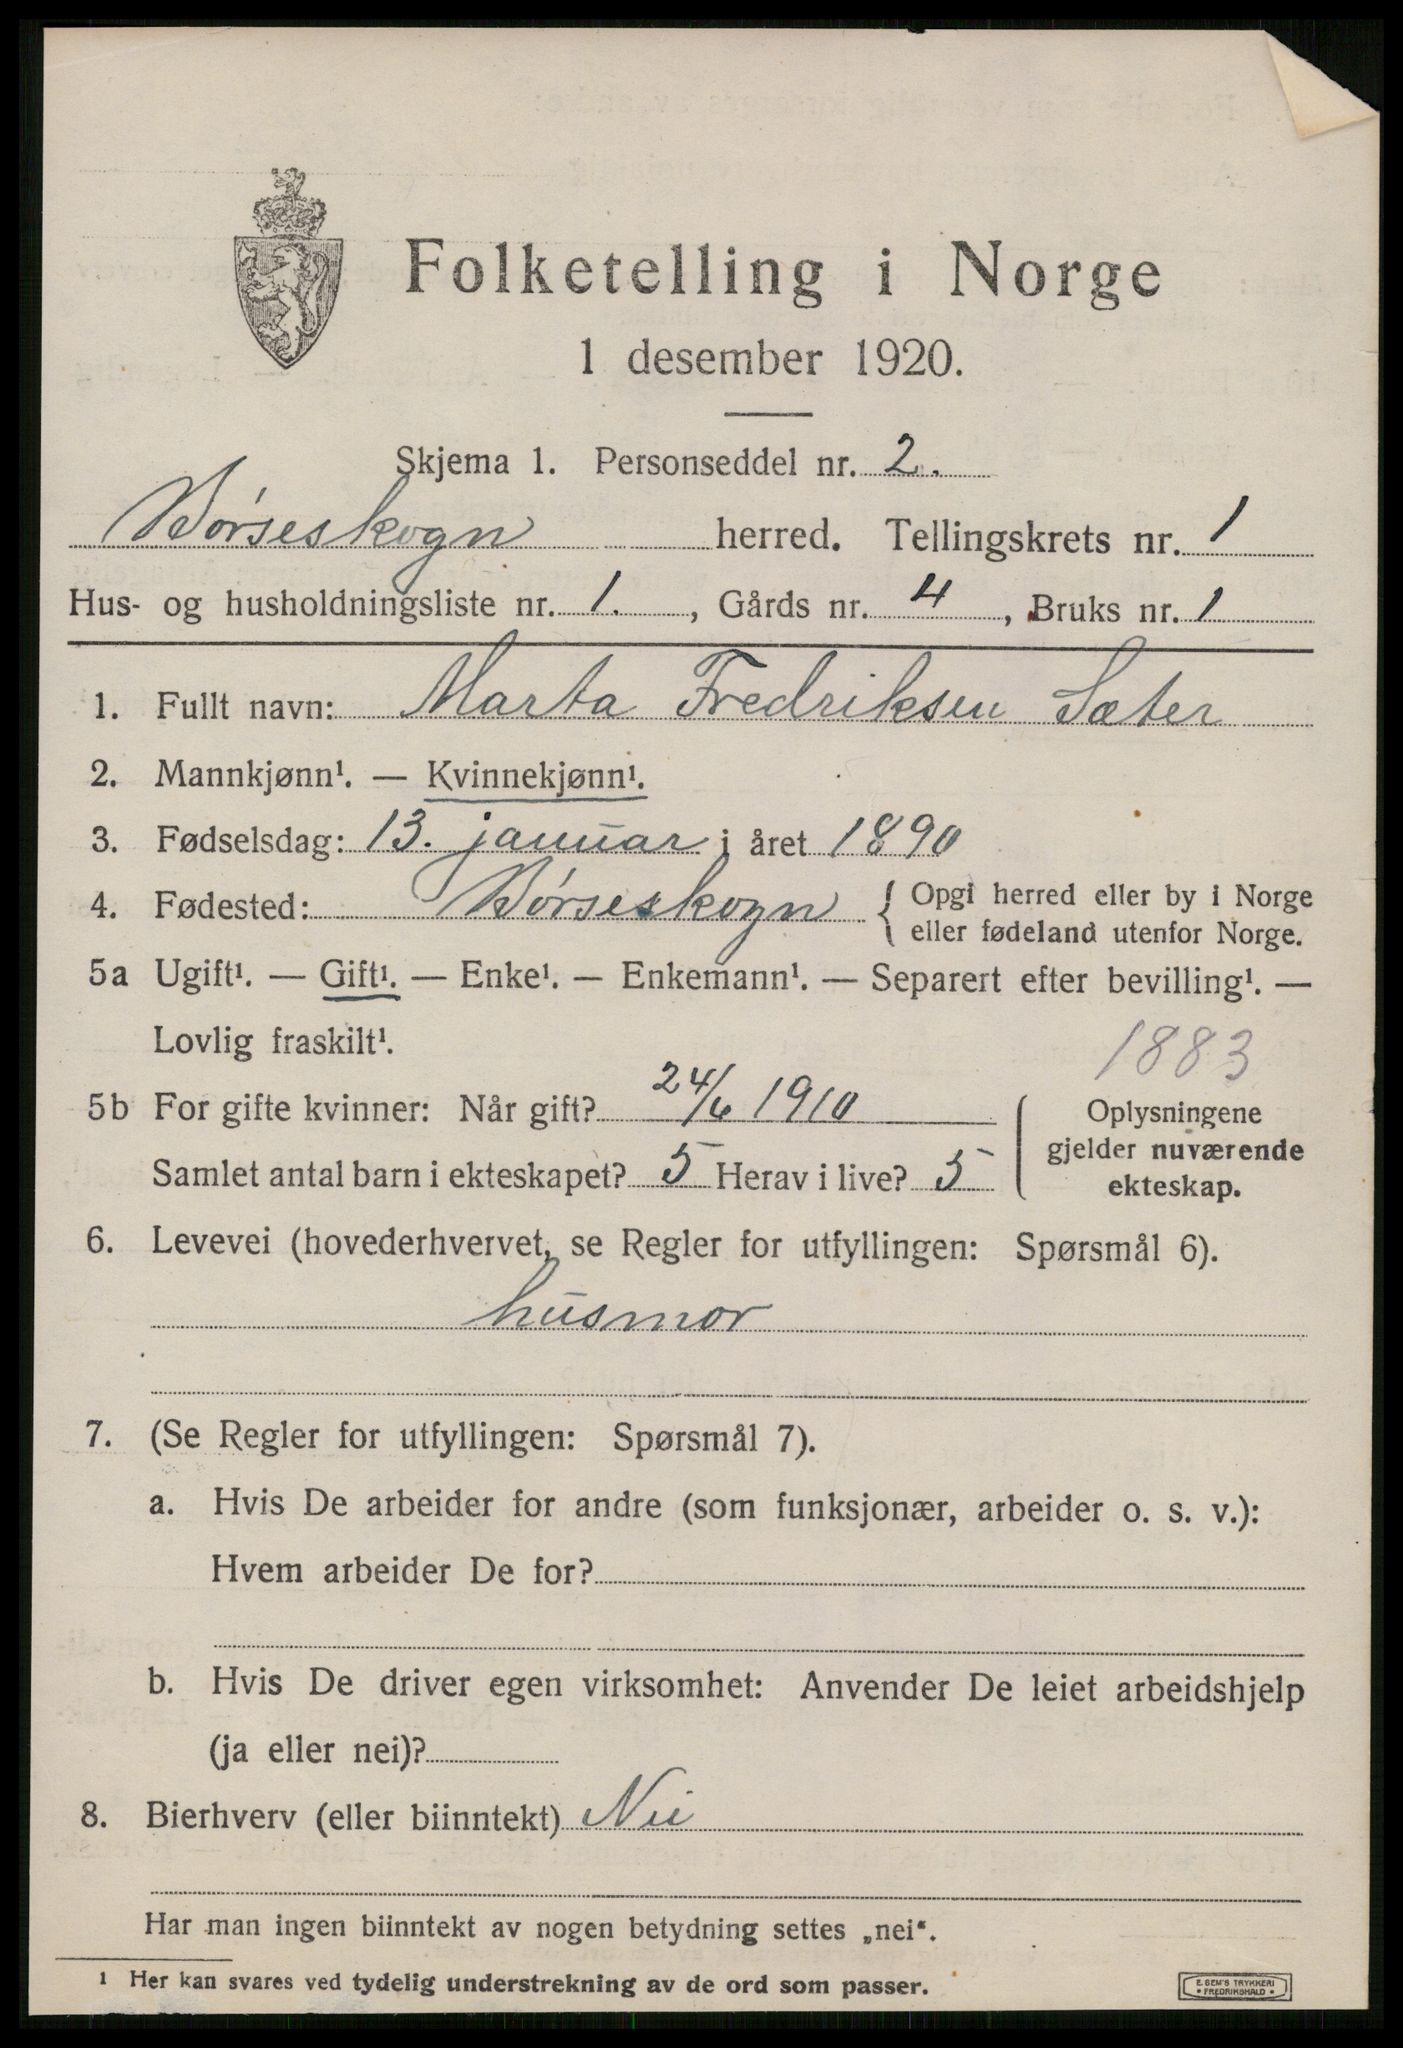 Folketelling i Norge
1 desember 1920.
Skjema 1. Personseddel nr. 2.
Børseskogn herred. Tellingskrets nr. 1
Hus- og husholdningsliste nr. 1. , Gårds nr. 4 , Bruks nr. 1
1. Fullt navn: Marta Fredriksen Sæter
2. Mannkjønn¹. — Kvinnekjønn¹.
3. Fødselsdag: 13. januar i året 1890
4. Fødested: Børseskogn { Opgi herred eller by i Norge
eller fødeland utenfor Norge.
5a Ugift¹. — Gift¹. — Enke¹. — Enkemann¹. — Separert efter bevilling¹. —
Lovlig fraskilt¹.
1883
5b For gifte kvinner: Når gift? 24/6 1910
Samlet antal barn i ekteskapet? 5 Herav i live? 5
Oplysningene
gjelder nuværende
ekteskap.
6. Levevei (hovederhvervet, se Regler for utfyllingen: Spørsmål 6).
husmor
7. (Se Regler for utfyllingen: Spørsmål 7).
a. Hvis De arbeider for andre (som funksjonær, arbeider o. s. v.):
Hvem arbeider De for?
b. Hvis De driver egen virksomhet: Anvender De leiet arbeidshjelp
(ja eller nei)?
8. Bierhverv (eller biinntekt) Nei
Har man ingen biinntekt av nogen betydning settes „nei“.
¹ Her kan svares ved tydelig understrekning av de ord som passer.
E. SEM'S TRYKKERI
• FREDRIKSHALD •